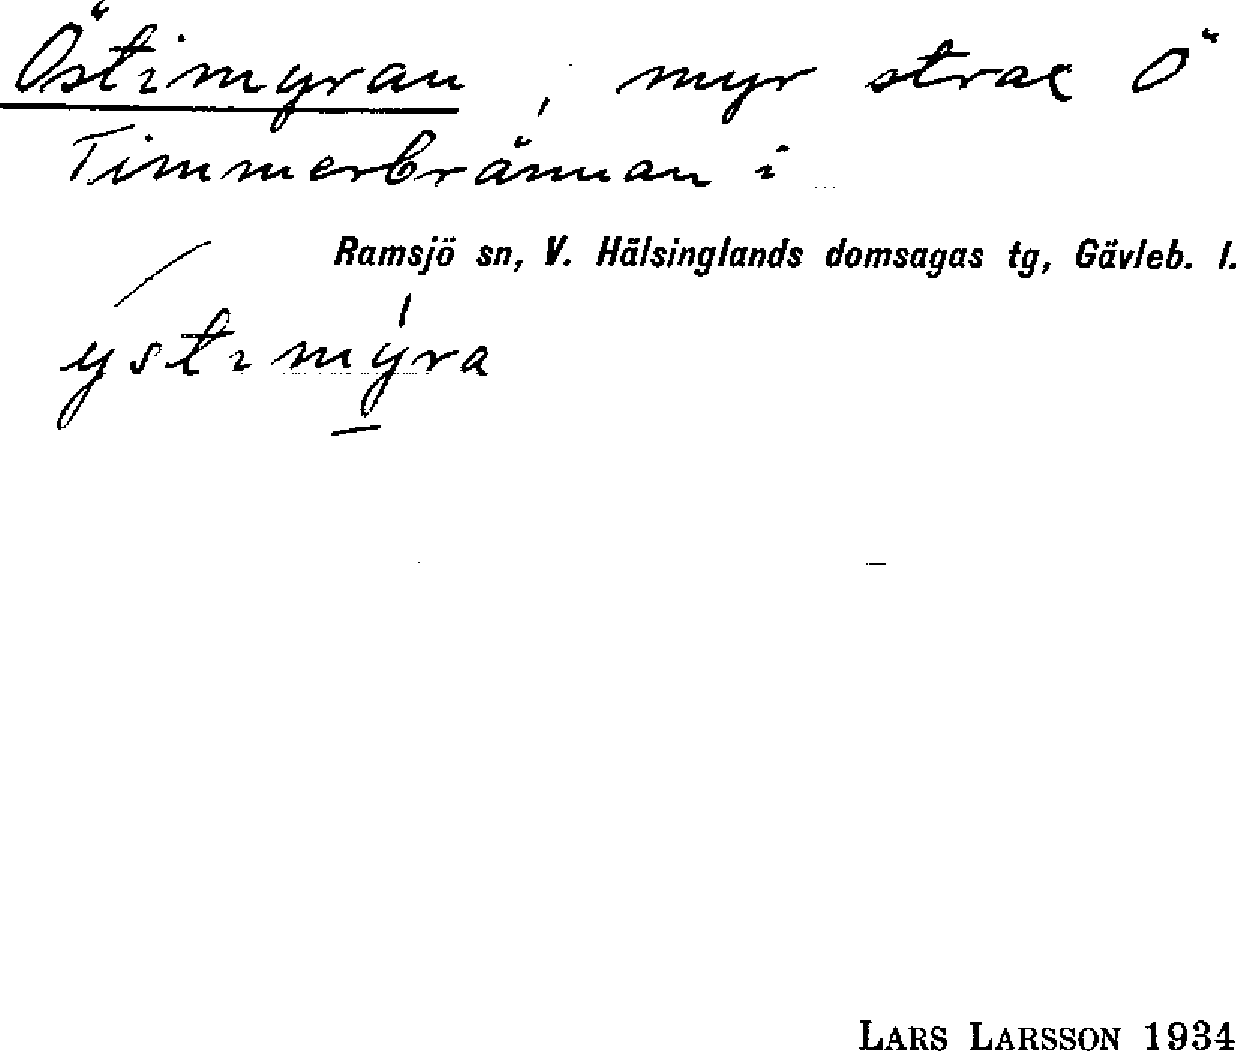 Östimyran, myr strax Ö
Timmerbrännan i
Ramsjö sn, V. Hälsinglands domsagas tg, Gävleb. l.
ýstımýra
LARS LARSSON 1934